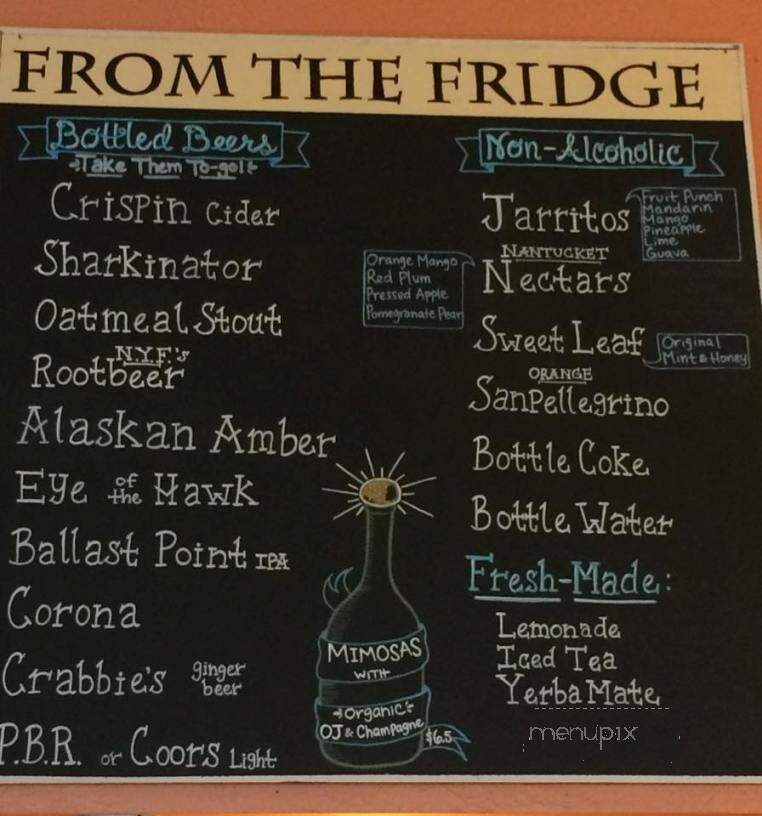 FROM THE FRIDGE
Bottled Beers
Take Them To-go!
Crispin Cider
Sharkinator
Oatmeal Stout
N.Y.F.'s
Rootbeer
Alaskan Amber
Eye of the Hawk
Ballast Point IPA
Corona
Crabbie's ginger beer
P.B.R. or Coors Light
MIMOSAS
WITH
Organic
OJ & Champagne
$6.5
Non-Alcoholic
Jarritos
Fruit Punch
Mandarin
Mango
Pineapple
Lime
Guava
NANTUCKET
Nectars
Orange Mango
Red Plum
Pressed Apple
Pomegranate Pear
Sweet Leaf
Original
Mint & Honey
ORANGE
SanPellegrino
Bottle Coke
Bottle Water
Fresh-Made:
Lemonade
Iced Tea
Yerba Mate
menupix